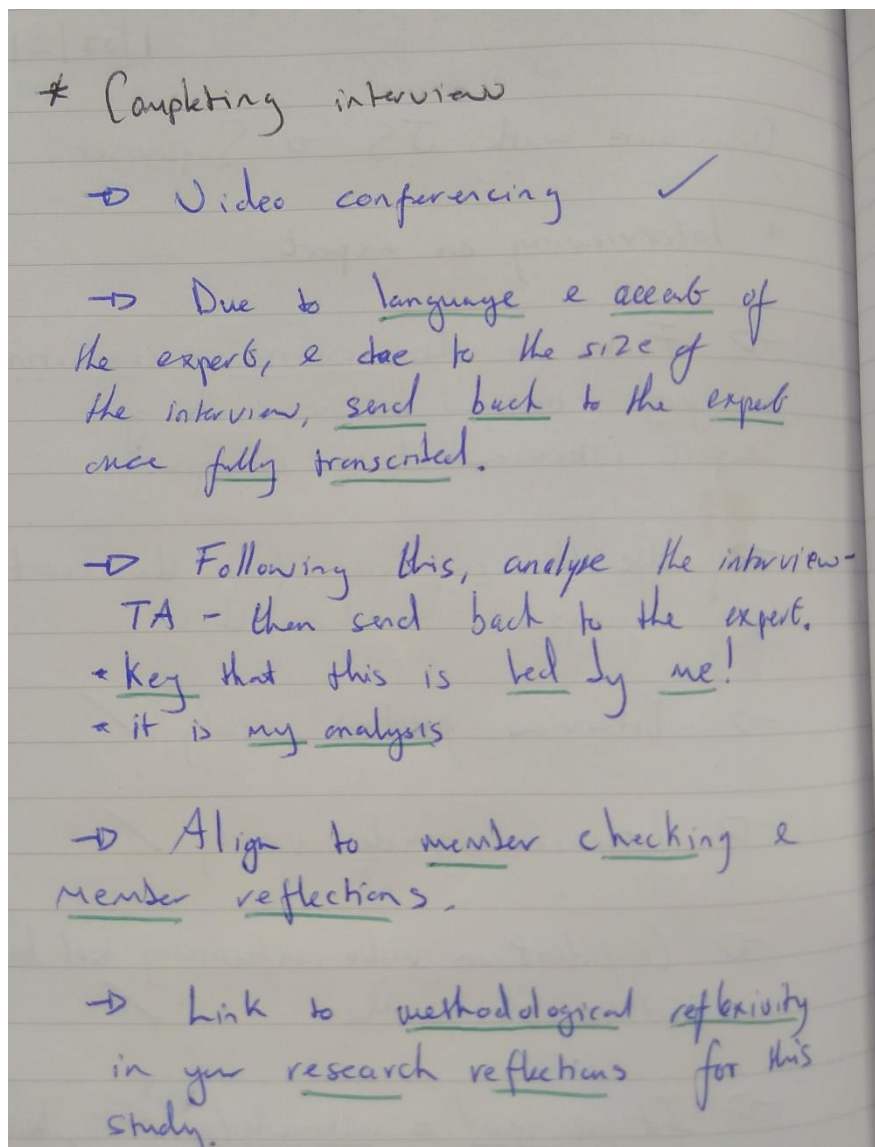 * Completing interview
→ Video conferencing ✓
→ Due to language & accent of
the expert, & due to the size of
the interview, send back to the expert
once fully transcribed.
→ Following this, analyse the interview-
TA - then send back to the expert.
* Key that this is led by me!
* it is my analysis
→ Align to member checking &
member reflections.
→ Link to methodological reflexivity
in your research reflections for this
study.